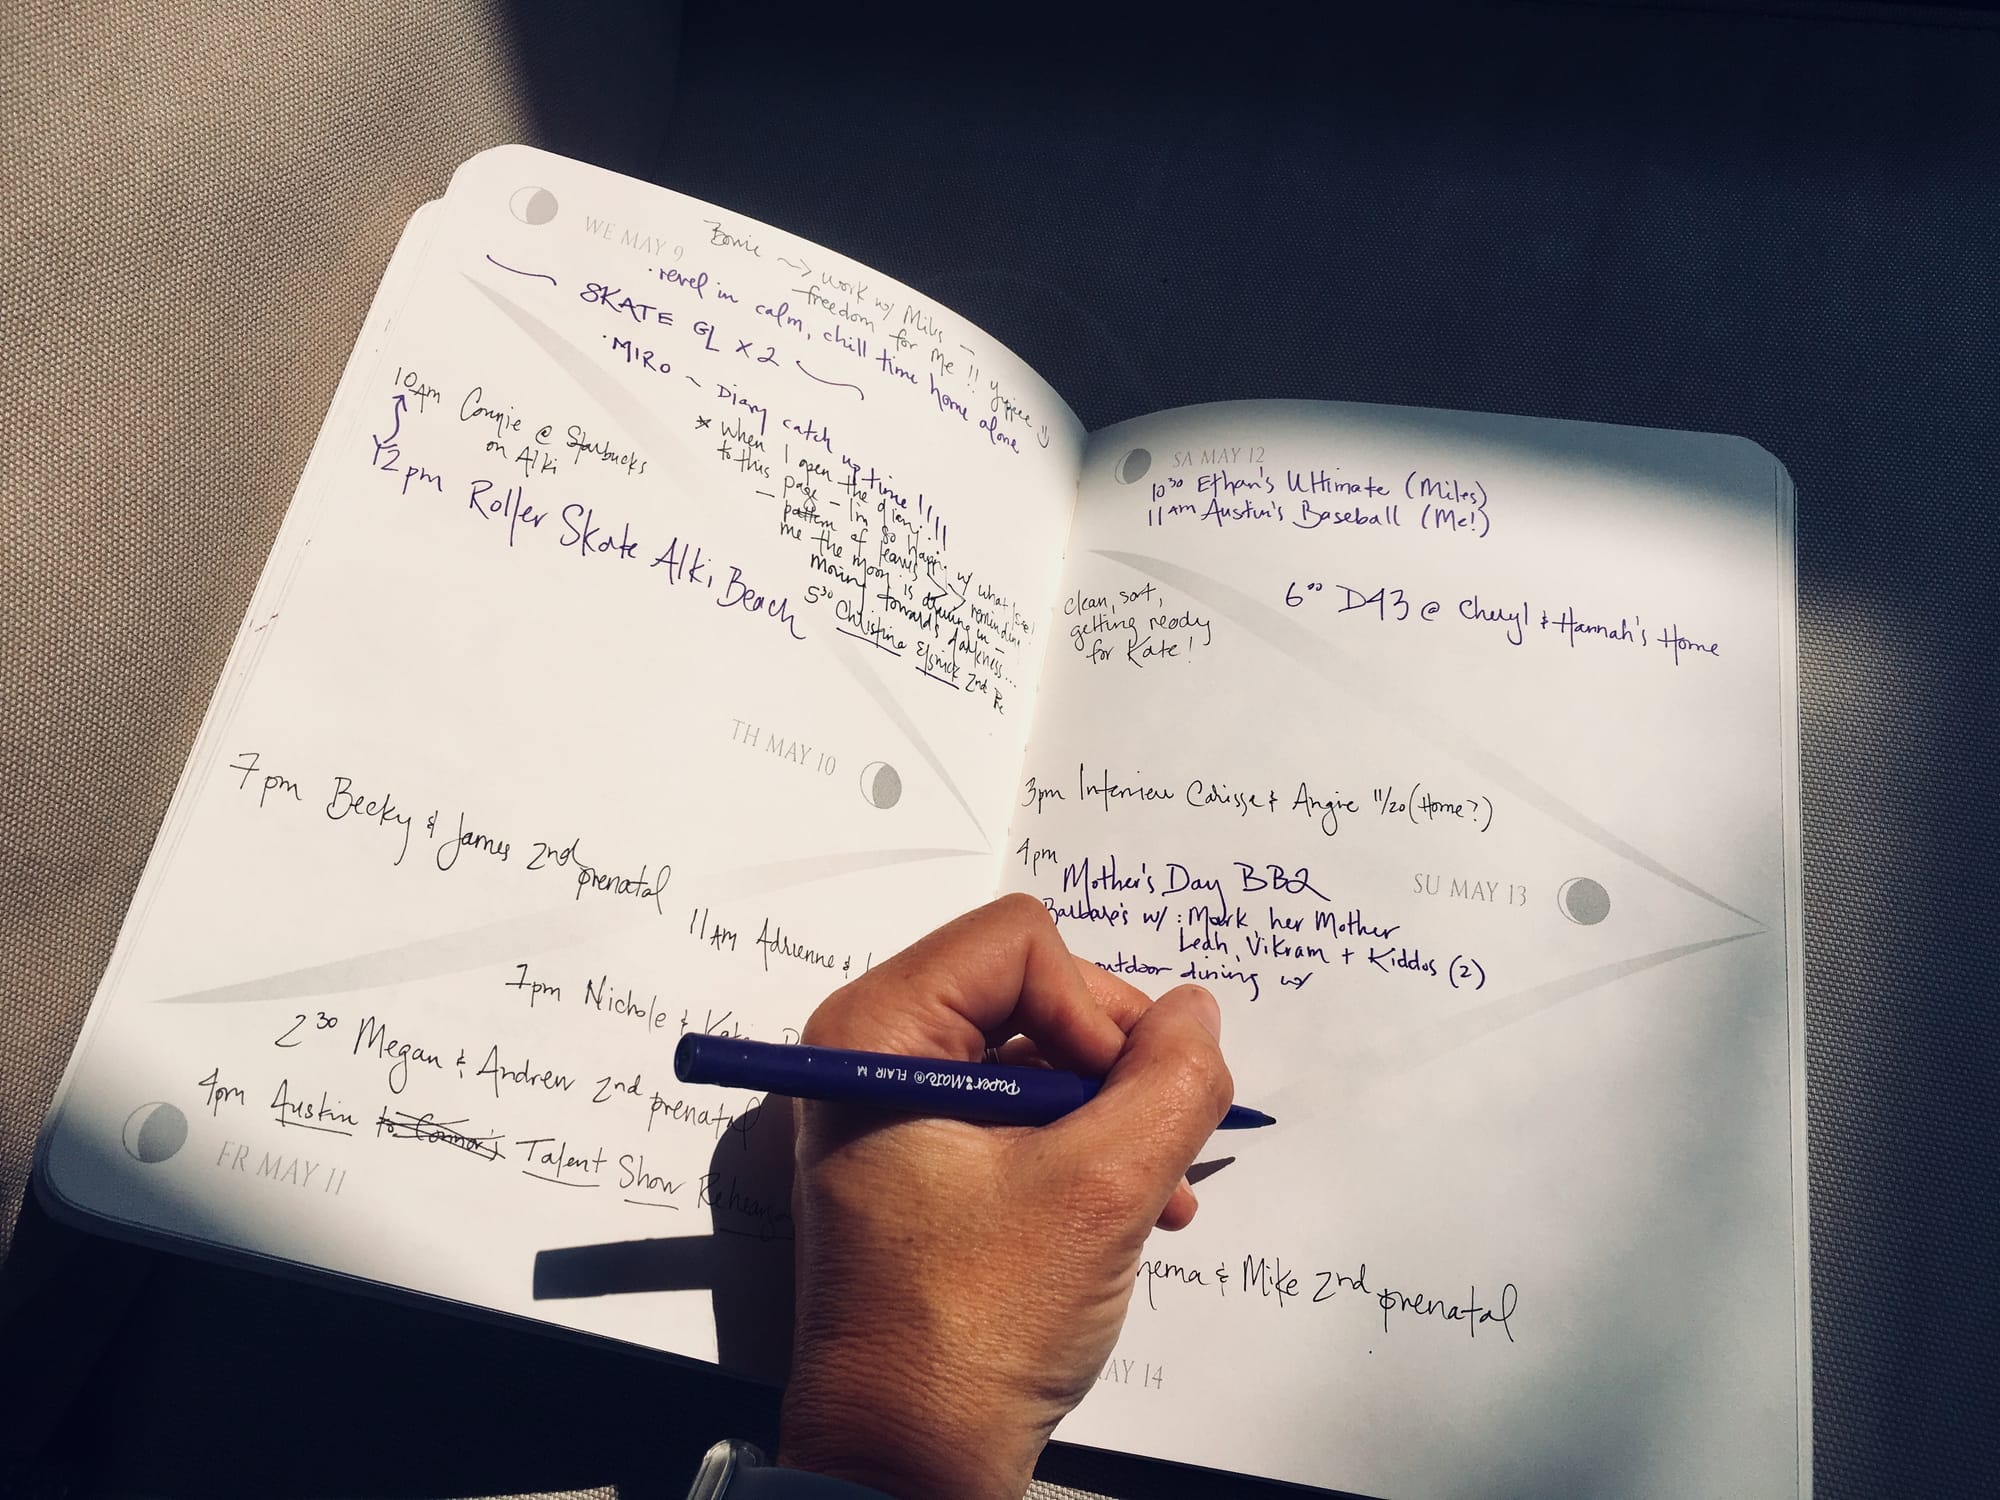 WE MAY 9
work w/ Miles –
freedom for me!! yippee
• revel in calm, chill time home alone
SKATE GL x 2
• MIRO ~ Diary catch up time!!!!
* when I open the diary
to this page – I'm so happy w/ what I see!
– pattern of leaves >> reminding
me the moon is drawing in –
moving towards darkness...
10AM Connie @ Starbucks
on Alki
12pm Roller Skate Alki Beach
5³⁰ Christina 2nd
TH MAY 10
7pm Becky & James 2nd prenatal
11AM Adrienne &
7pm Nichole & Katie
2³⁰ Megan & Andrew 2nd prenatal
4pm Austin to Connor's Talent Show
FR MAY 11
SA MAY 12
10³⁰ Ethan's Ultimate (Miles)
11AM Austin's Baseball (Me!)
6⁰⁰ D43 @ Cheryl & Hannah's Home
clean, sort,
getting ready
for Kate!
3pm Interview Carissa & Angie 11/20 (Home?)
4pm
Mother's Day BBQ
SU MAY 13
Barbara's w/: Mark, her Mother
Leah, Vikram + Kiddos (2)
outdoor dining w/
Paper Mate® FLAIR M
& Mike 2nd prenatal
AY 14